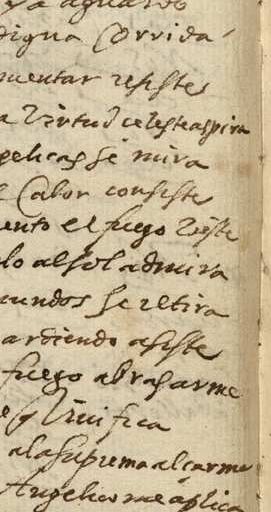 aguardo
digna Corrida
mentar resistes
a Virtud celeste aspira
gelicas se mira
Calor consistes
ento el fuego viste
lo al sol admira
mundos se retira
ardiendo asiste
fuego abrasarme
q Viuifica
a la suprema alçarme
Angelico me aplica